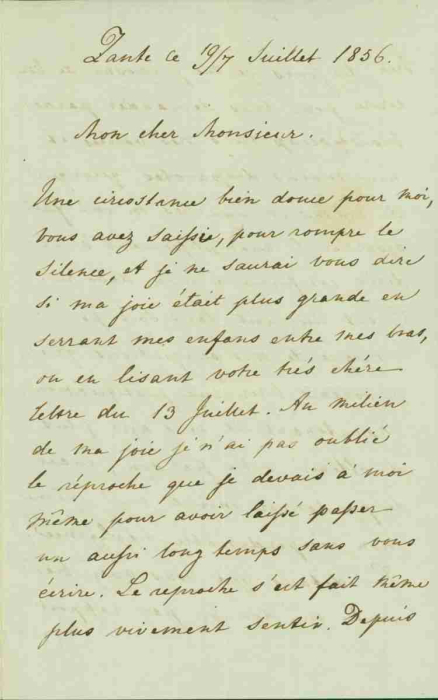 Zante ce 19/7 Juillet 1856.
Mon cher Monsieur.
Une circostance bien douce pour moi,
vous avez saisie, pour rompre le
silence, et je ne saurai vous dire
si ma joie était plus grande en
serrant mes enfans entre mes bras,
ou en lisant votre très chére
lettre du 13 Juillet. Au milieu
de ma joie je n'ai pas oublié
le réproche que je devais à moi
même pour avoir laissé passer
un aussi long temps sans vous
écrire. Le reproche s'est fait même
plus vivement sentir. Depuis